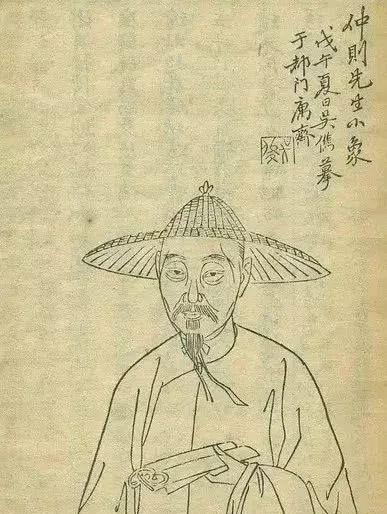 仲則先生小象
戊午夏日吳儁摹
于都門庽齋